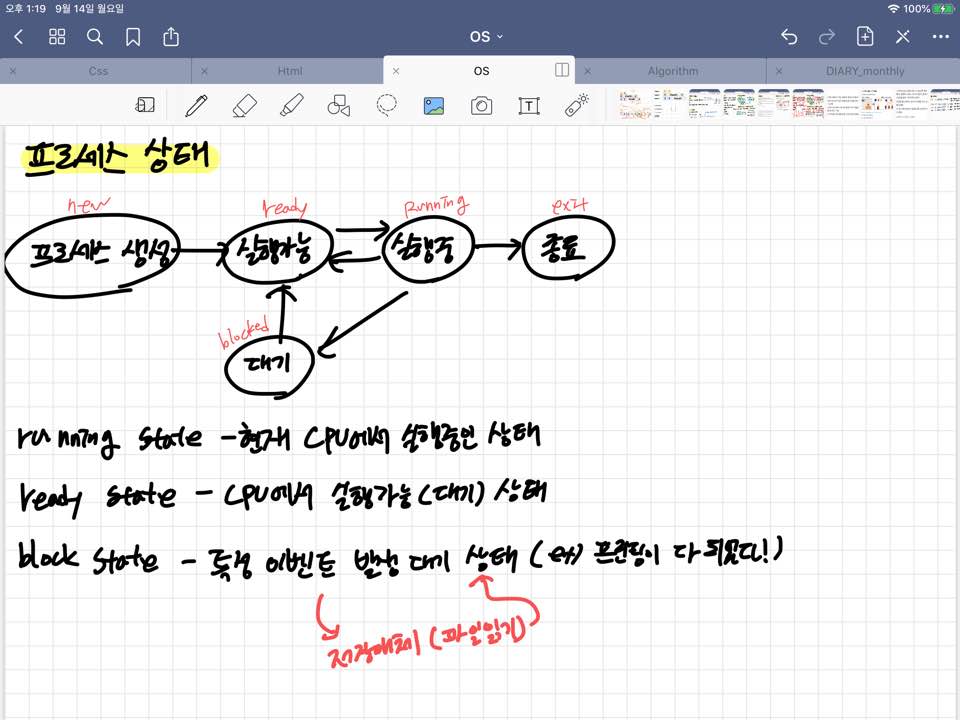 오후 1:19 9월 14일 월요일
100%
OS
Css
Html
OS
Algorithm
DIARY_monthly
프로세스 상태
new
ready
running
exit
프로세스 생성
실행가능
실행중
종료
blocked
대기
running state - 현재 CPU에서 실행중인 상태
ready state - CPU에서 실행가능(대기) 상태
block state - 특정 이벤트 발생 대기 상태 (ex) 프린팅이 다 되었다!)
저장매체 (파일읽기)